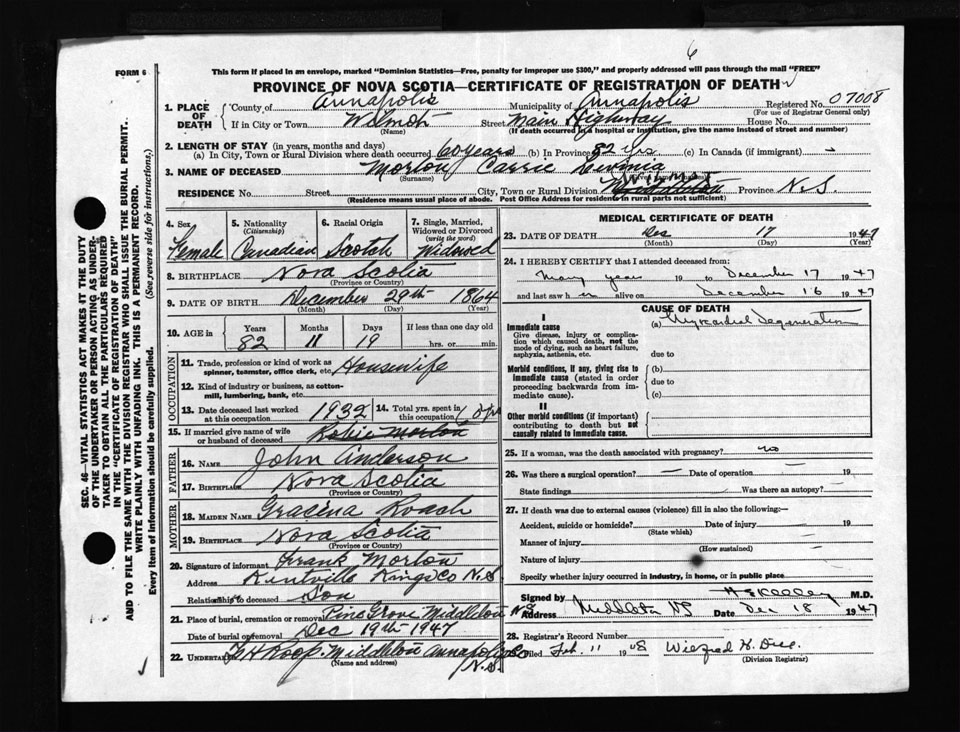 6
FORM 6
This form if placed in an envelope, marked "Dominion Statistics—Free, penalty for improper use $300," and properly addressed will pass through the mail "FREE"
PROVINCE OF NOVA SCOTIA—CERTIFICATE OF REGISTRATION OF DEATH
1. PLACE OF DEATH
County of Annapolis Municipality of Annapolis Registered No. 07008
(For use of Registrar General only)
If in City or Town Wilmot Street Main Highway House No.
(Name) (If death occurred in a hospital or institution, give the name instead of street and number)
2. LENGTH OF STAY (in years, months and days)
(a) In City, Town or Rural Division where death occurred 60 years (b) In Province 82 yrs (c) In Canada (if immigrant) -
3. NAME OF DECEASED Morton Carrie
(Surname)
RESIDENCE No. Street City, Town or Rural Division Wilmot Middleton Province N.S.
Residence means usual place of abode. Post Office Address for residents in rural parts not sufficient)
4. Sex Female
5. Nationality (Citizenship) Canadian
6. Racial Origin Scotch
7. Single, Married, Widowed or Divorced (write the word) Widowed
8. BIRTHPLACE Nova Scotia
(Province or Country)
9. DATE OF BIRTH December 29th 1864
(Month) (Day) (Year)
10. AGE in Years 82 Months 11 Days 19 If less than one day old hrs. or min.
OCCUPATION
11. Trade, profession or kind of work as spinner, teamster, office clerk, etc. Housewife
12. Kind of industry or business, as cotton-mill, lumbering, bank, etc.
13. Date deceased last worked at this occupation 1932
14. Total yrs. spent in this occupation
15. If married give name of wife or husband of deceased Robie Morton
FATHER
16. NAME John Anderson
17. BIRTHPLACE Nova Scotia
(Province or Country)
MOTHER
18. MAIDEN NAME Gracena Roach
19. BIRTHPLACE Nova Scotia
(Province or Country)
20. Signature of informant Frank Morton
Address Kentville Kings Co N.S
Relationship to deceased Son
21. Place of burial, cremation or removal Pine Grove Middleton NS
Date of burial or removal Dec 19th 1947
22. Undertaker Roop Middleton Annapolis Co
(Name and address) N.S.
MEDICAL CERTIFICATE OF DEATH
23. DATE OF DEATH Dec 17 1947
(Month) (Day) (Year)
24. I HEREBY CERTIFY that I attended deceased from:
Many years 19 to December 17 1947
and last saw her alive on December 16 1947
CAUSE OF DEATH
I
Immediate cause
Give disease, injury or complication which caused death, not the mode of dying, such as heart failure, asphyxia, asthenia, etc.
(a) Myocardial Degeneration
due to
Morbid conditions, if any, giving rise to immediate cause (stated in order proceeding backwards from immediate cause).
(b)
due to
(c)
II
Other morbid conditions (if important) contributing to death but not causally related to immediate cause.
25. If a woman, was the death associated with pregnancy? no
26. Was there a surgical operation? — Date of operation — 19
State findings Was there an autopsy? —
27. If death was due to external causes (violence) fill in also the following:—
Accident, suicide or homicide? Date of injury 19
(State which)
Manner of injury
(How sustained)
Nature of injury
Specify whether injury occurred in industry, in home, or in public place
Signed by M.D.
Address Middleton NS Date Dec 18 1947
28. Registrar's Record Number
Filed Feb. 11 1948
(Division Registrar)
SEC. 46—VITAL STATISTICS ACT MAKES IT THE DUTY
OF THE UNDERTAKER OR PERSON ACTING AS UNDER-
TAKER TO OBTAIN ALL THE PARTICULARS REQUIRED
IN THE "CERTIFICATE OF REGISTRATION OF DEATH"
AND TO FILE THE SAME WITH THE DIVISION REGISTRAR WHO SHALL ISSUE THE BURIAL PERMIT.
WRITE PLAINLY WITH UNFADING INK. THIS IS A PERMANENT RECORD.
Every item of information should be carefully supplied. (See reverse side for instructions.)